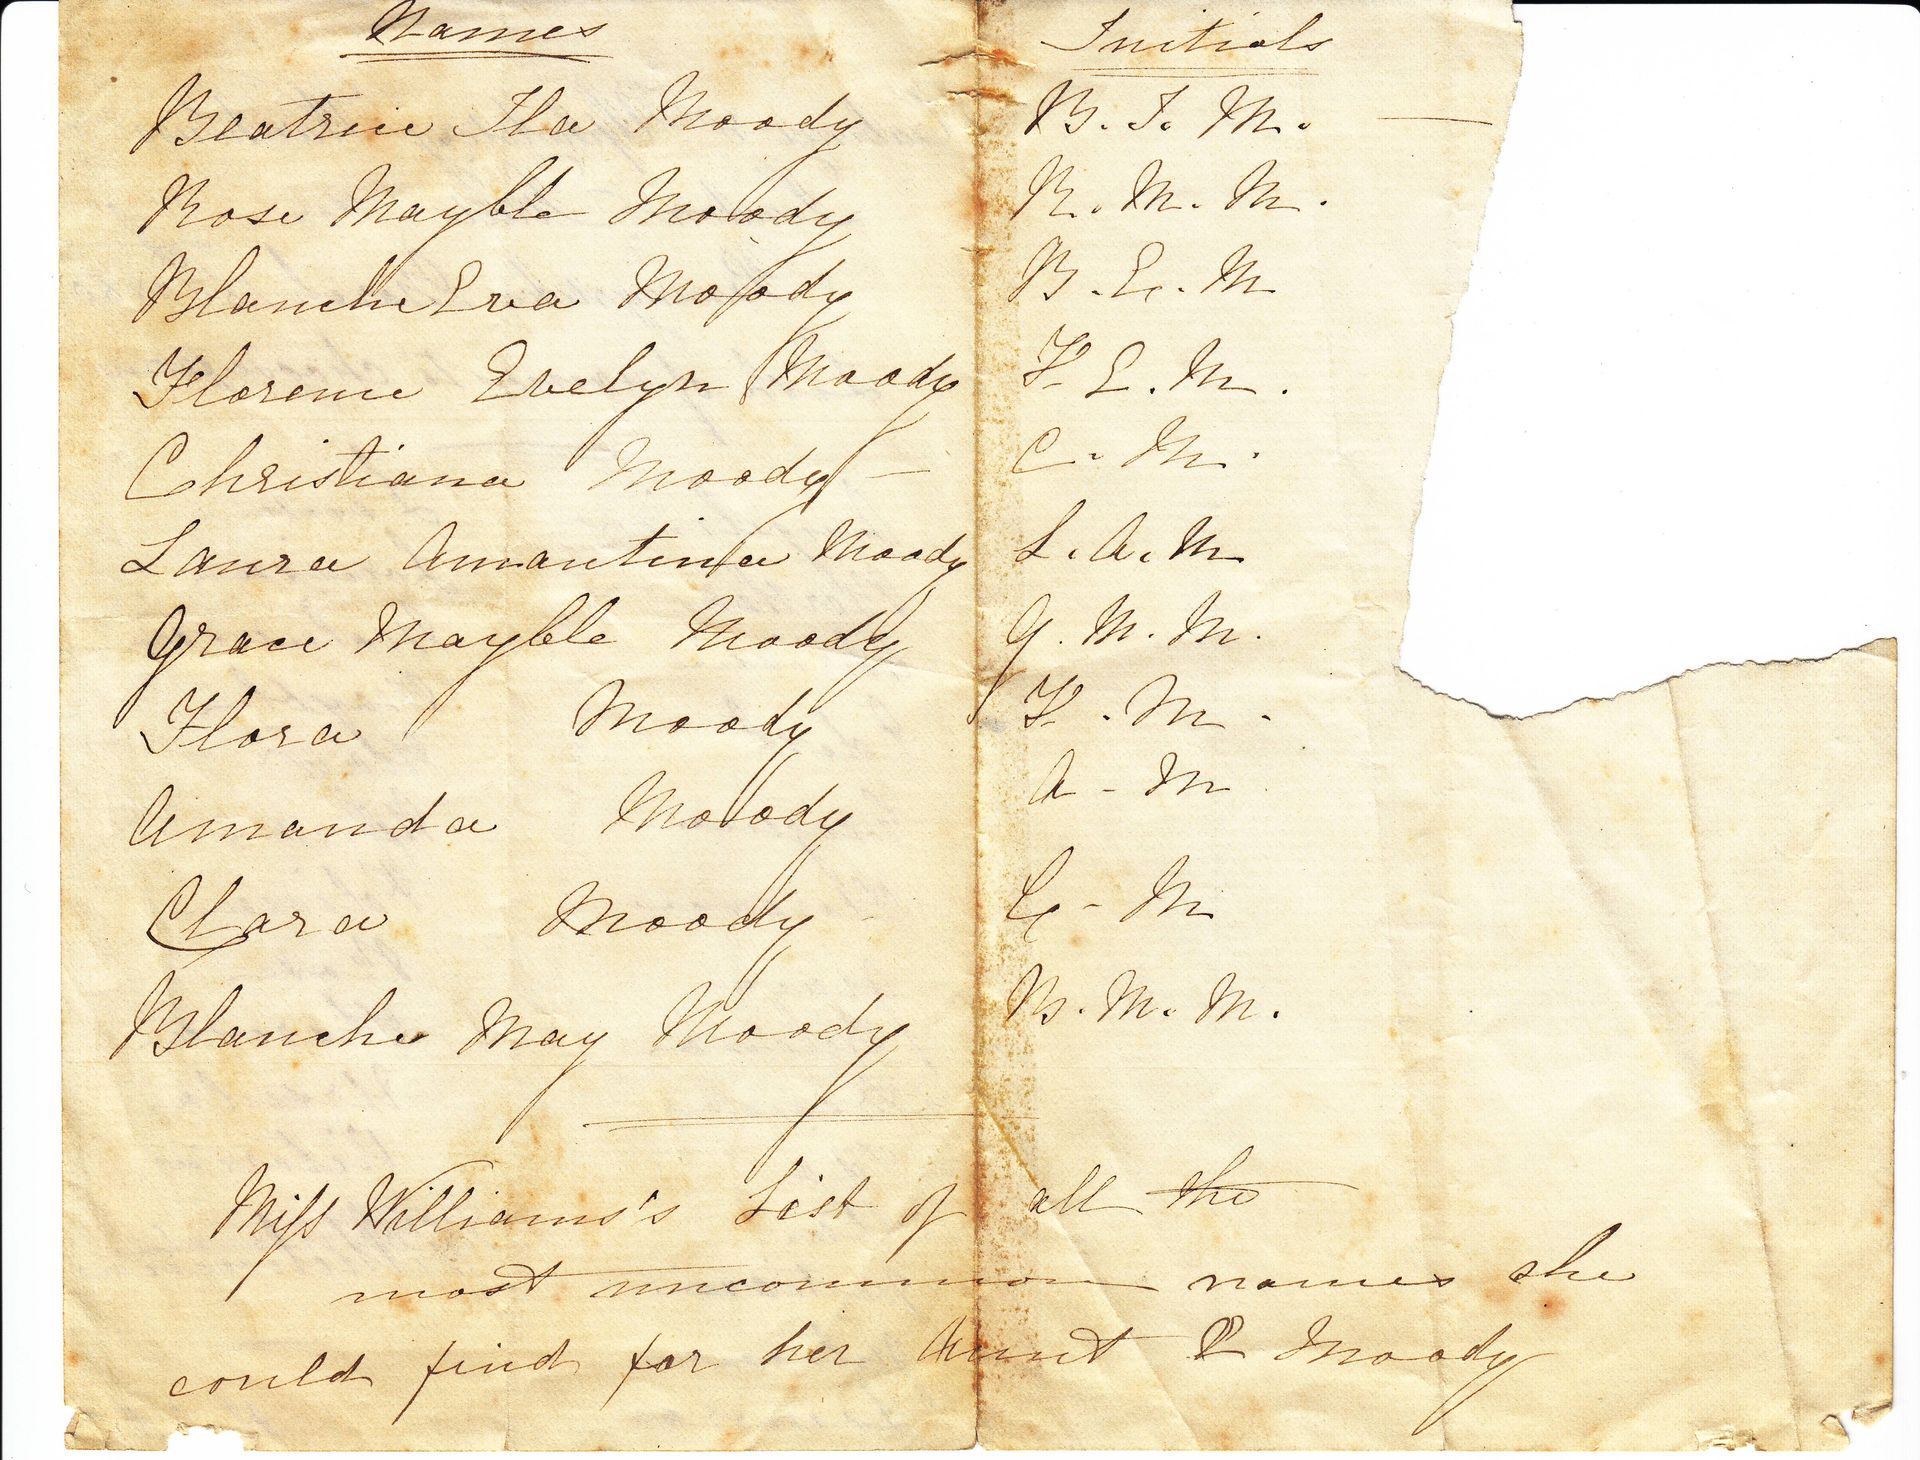 Names Initials
Beatrice Ila Moody B. I. M. —
Rose Mayble Moody R. M. M.
Blanche Eva Moody B. E. M
Florence Evelyn Moody F E. M.
Christiana Moody — C. M.
Laura Amantina Moody L. A. M
Grace Mayble Moody G. M. M.
Flora Moody F. M.
Amanda Moody A - M
Clara Moody C - M
Blanche May Moody B. M. M.
Miss Williams's List of all the
most uncommon names she
could find for her Aunt Moody